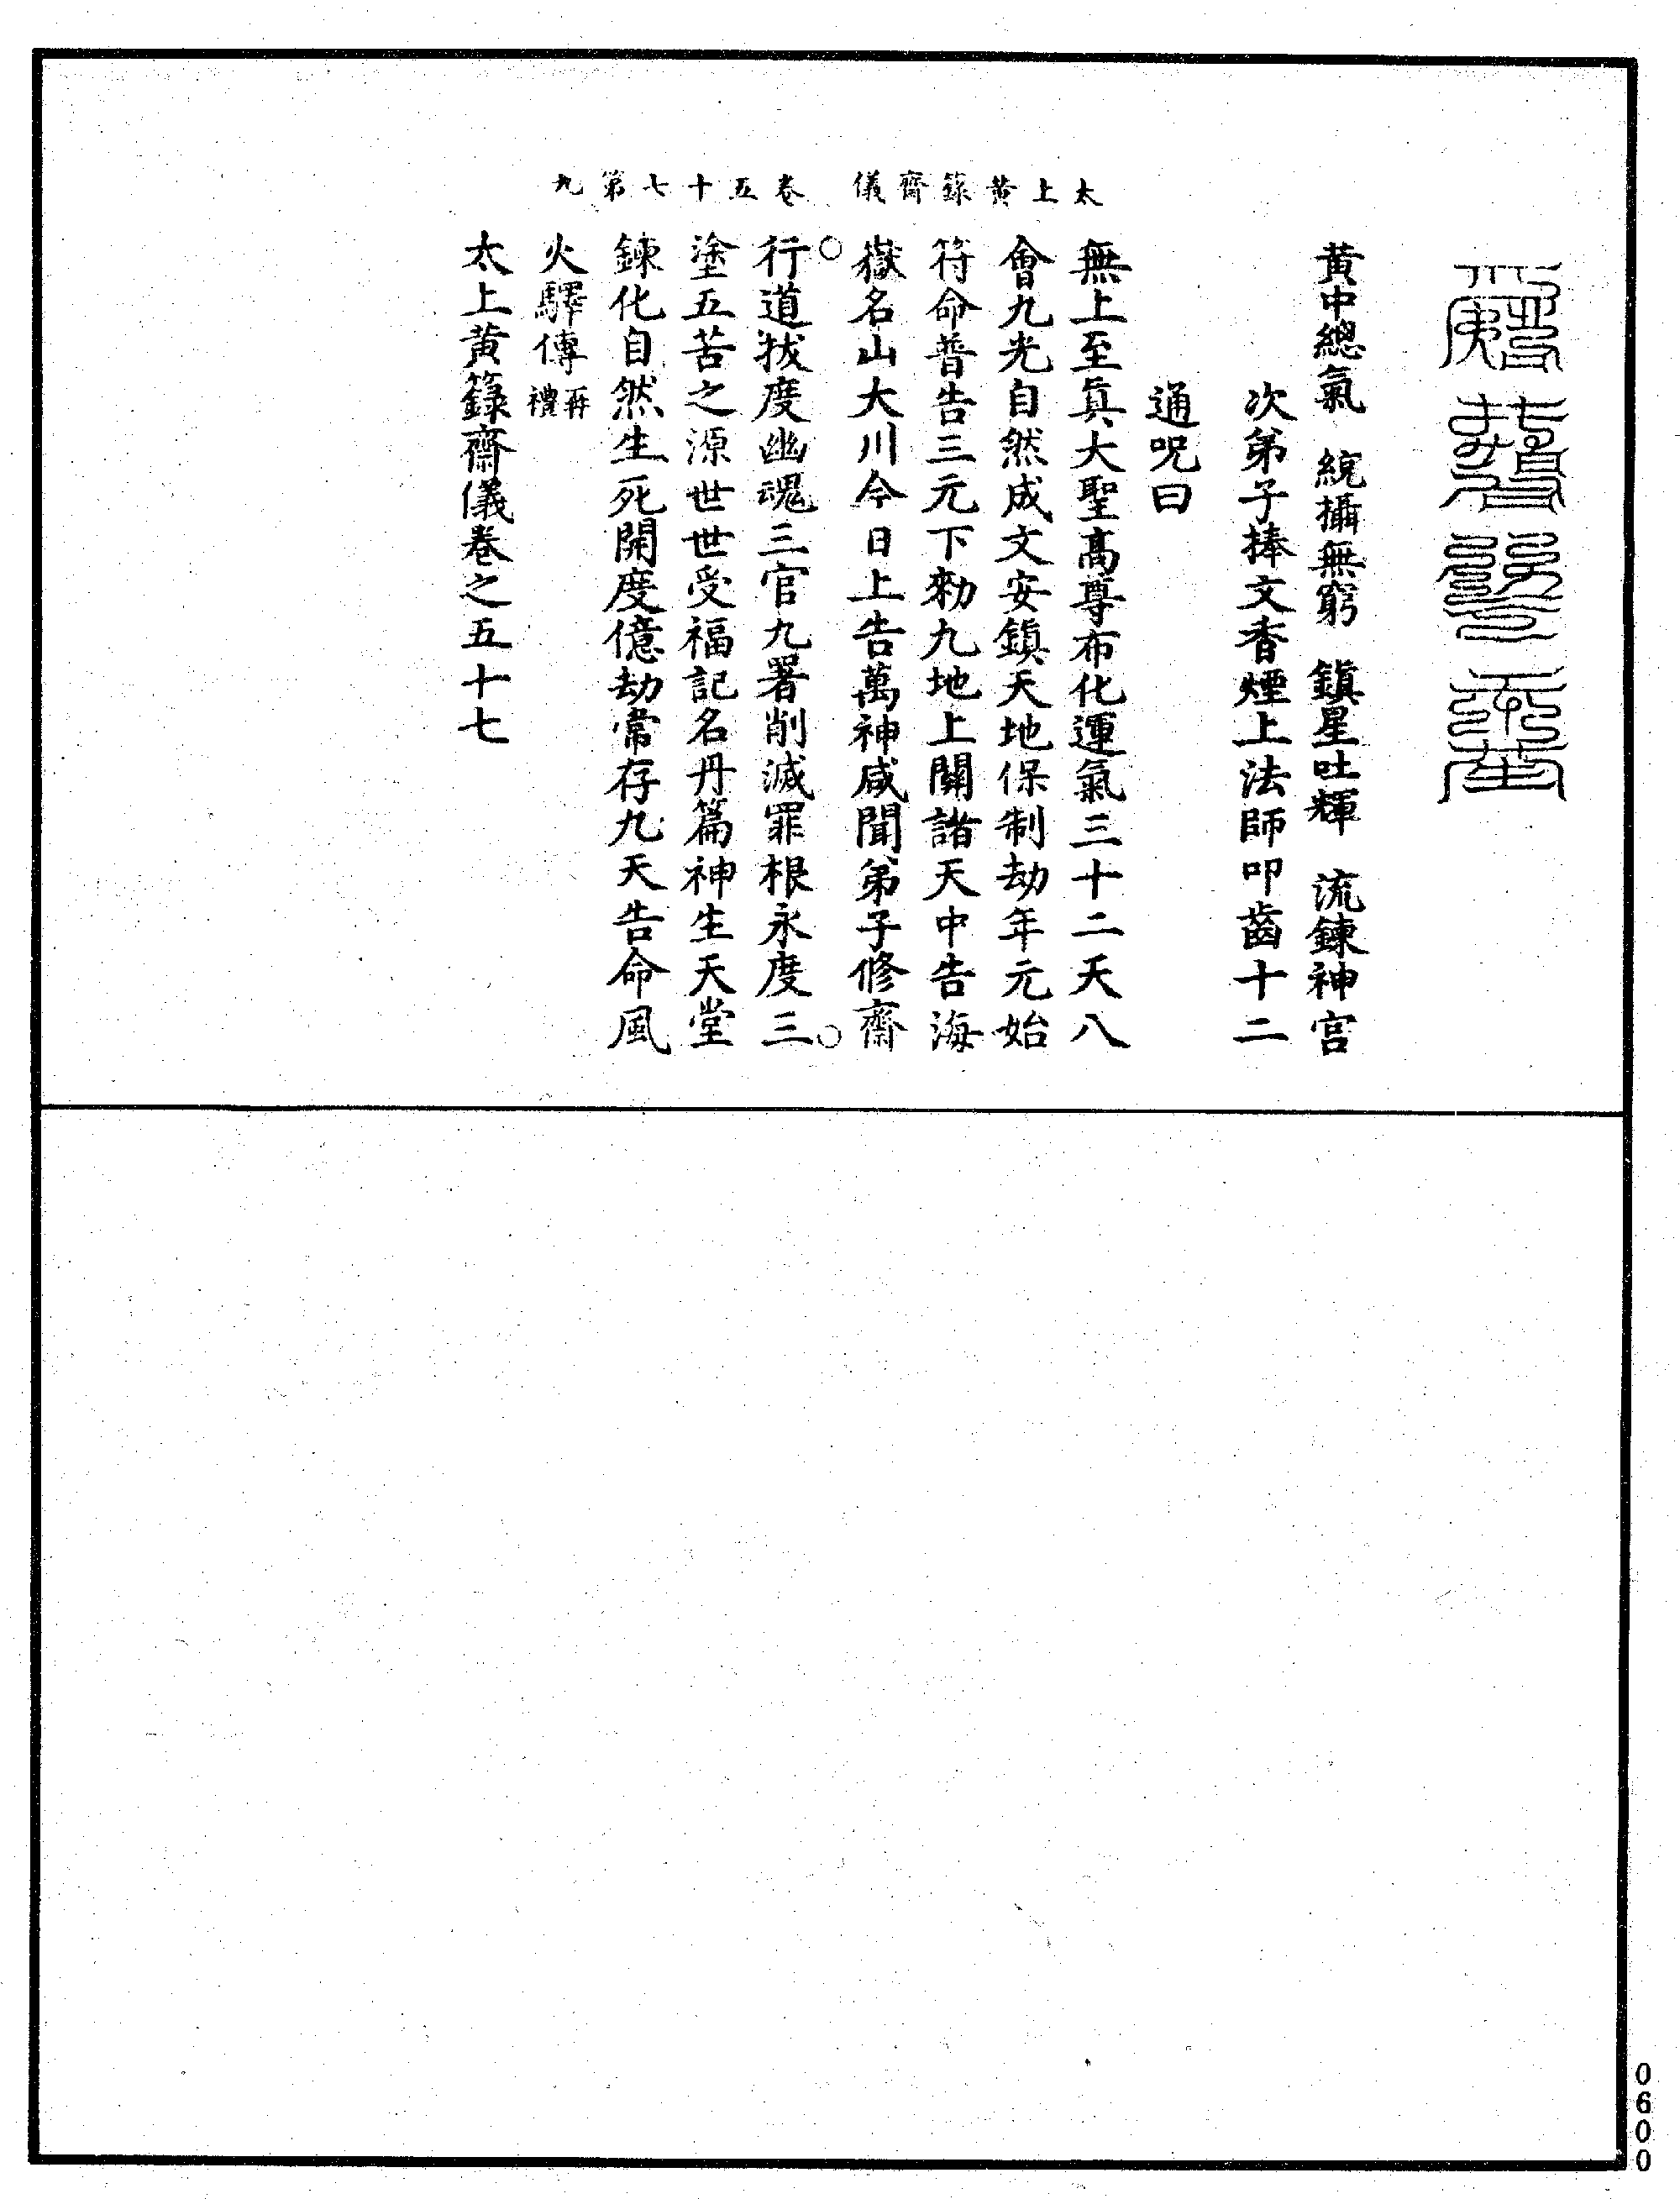 太上黃籙齋儀　卷五十七　第九
黃中總氣　統攝無窮　鎮星吐輝　流鍊神宮
次弟子捧文香煙上法師叩齒十二
通呪曰
無上至真大聖高尊布化運氣三十二天八
會九光自然成文安鎮天地保制劫年元始
符命普告三元下勑九地上關諸天中告海
嶽名山大川今日上告萬神咸聞弟子修齋
行道拔度幽魂三官九署削滅罪根永度三
塗五苦之源世世受福記名丹篇神生天堂
鍊化自然生死開度億劫常存九天告命風
火驛傳再禮
太上黃籙齋儀卷之五十七
0600